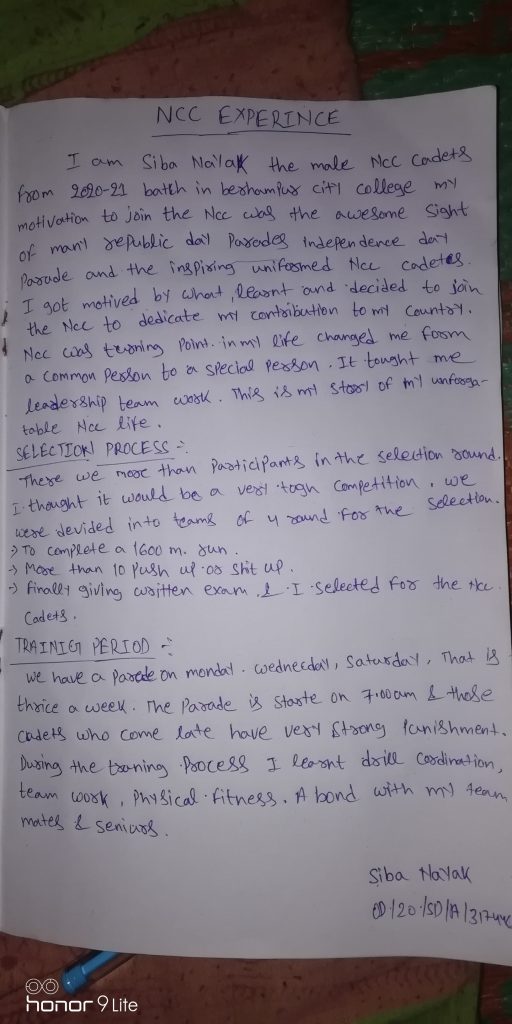 NCC EXPERINCE
I am Siba Nayak the male Ncc Cadets
from 2020-21 batch in berhampur city college my
motivation to join the Ncc was the awesome sight
of many republic day Parades Independence day
Parade and the inspiring uniformed Ncc cadetes.
I got motived by what learnt and decided to join
the Ncc to dedicate my contribution to my Country.
Ncc was turning Point in my life changed me form
a common person to a special person. It tought me
leadership team work. This is my story of my unforga-
table Ncc life.
SELECTION PROCESS :-
There we more than Participants in the selection round.
I thought it would be a very togh competition. we
were devided into teams of 4 round for the selection.
-> To complete a 1600 m. run.
-> More than 10 Push up or shit up.
-> finally giving written exam. & I selected for the Ncc
Cadets.
TRAINIG PERIOD :-
we have a Parede on monday. wednecday, Saturday, That is
thrice a week. The Parade is starte on 7.00am & those
cadets who come late have very strong Punishment.
During the traning Process I learnt drill Cordination,
team work, Physical fitness. A bond with my team
mates & seniurs.
Siba Nayak
honor 9 Lite